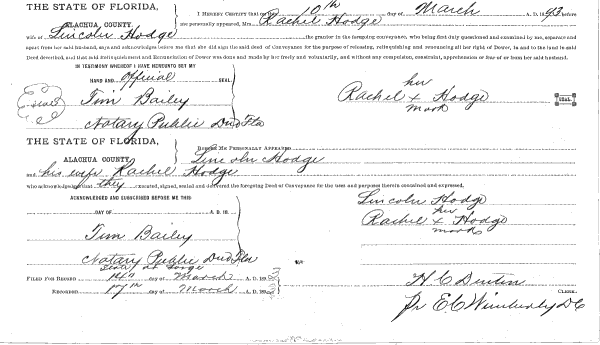 THE STATE OF FLORIDA,
ALACHUA COUNTY.
I HEREBY CERTIFY that on this 10th day of March A. D. 1893 before
me personally appeared, Mrs. Rachel Hodge
wife of Lincoln Hodge the grantor in the foregoing conveyance, who being first duly questioned and examined by me, separate and
apart from her said husband, says and acknowledges before me that she did sign the said deed of Conveyance for the purpose of releasing, relinquishing and renouncing all her right of Dower, in and to the land in said
Deed described, and that said Relinquishment and Renunciation of Dower was done and made by her freely and voluntarily, and without any compulsion, constraint, apprehension or fear of or from her said husband.
IN TESTIMONY WHEREOF I HAVE HEREUNTO SET MY
HAND AND official SEAL
Seal
Tim Bailey
Notary Public
her
Rachel x Hodge
mark
SEAL.
THE STATE OF FLORIDA,
ALACHUA COUNTY
BEFORE ME PERSONALLY APPEARED Lincoln Hodge
and his wife Rachel Hodge
who acknowledged that they executed, signed, sealed and delivered the foregoing Deed of Conveyance for the uses and purposes therein contained and expressed.
ACKNOWLEDGED AND SUBSCRIBED BEFORE ME THIS
DAY OF A. D. 18
Tim Bailey
Notary Public
State at Large
Lincoln Hodge
her
Rachel x Hodge
mark
FILED FOR RECORD 14th day of March A. D. 189
RECORDED 17th day of March A. D. 189
H. C. Denton
CLERK.
pr E. C. Wimberly D C